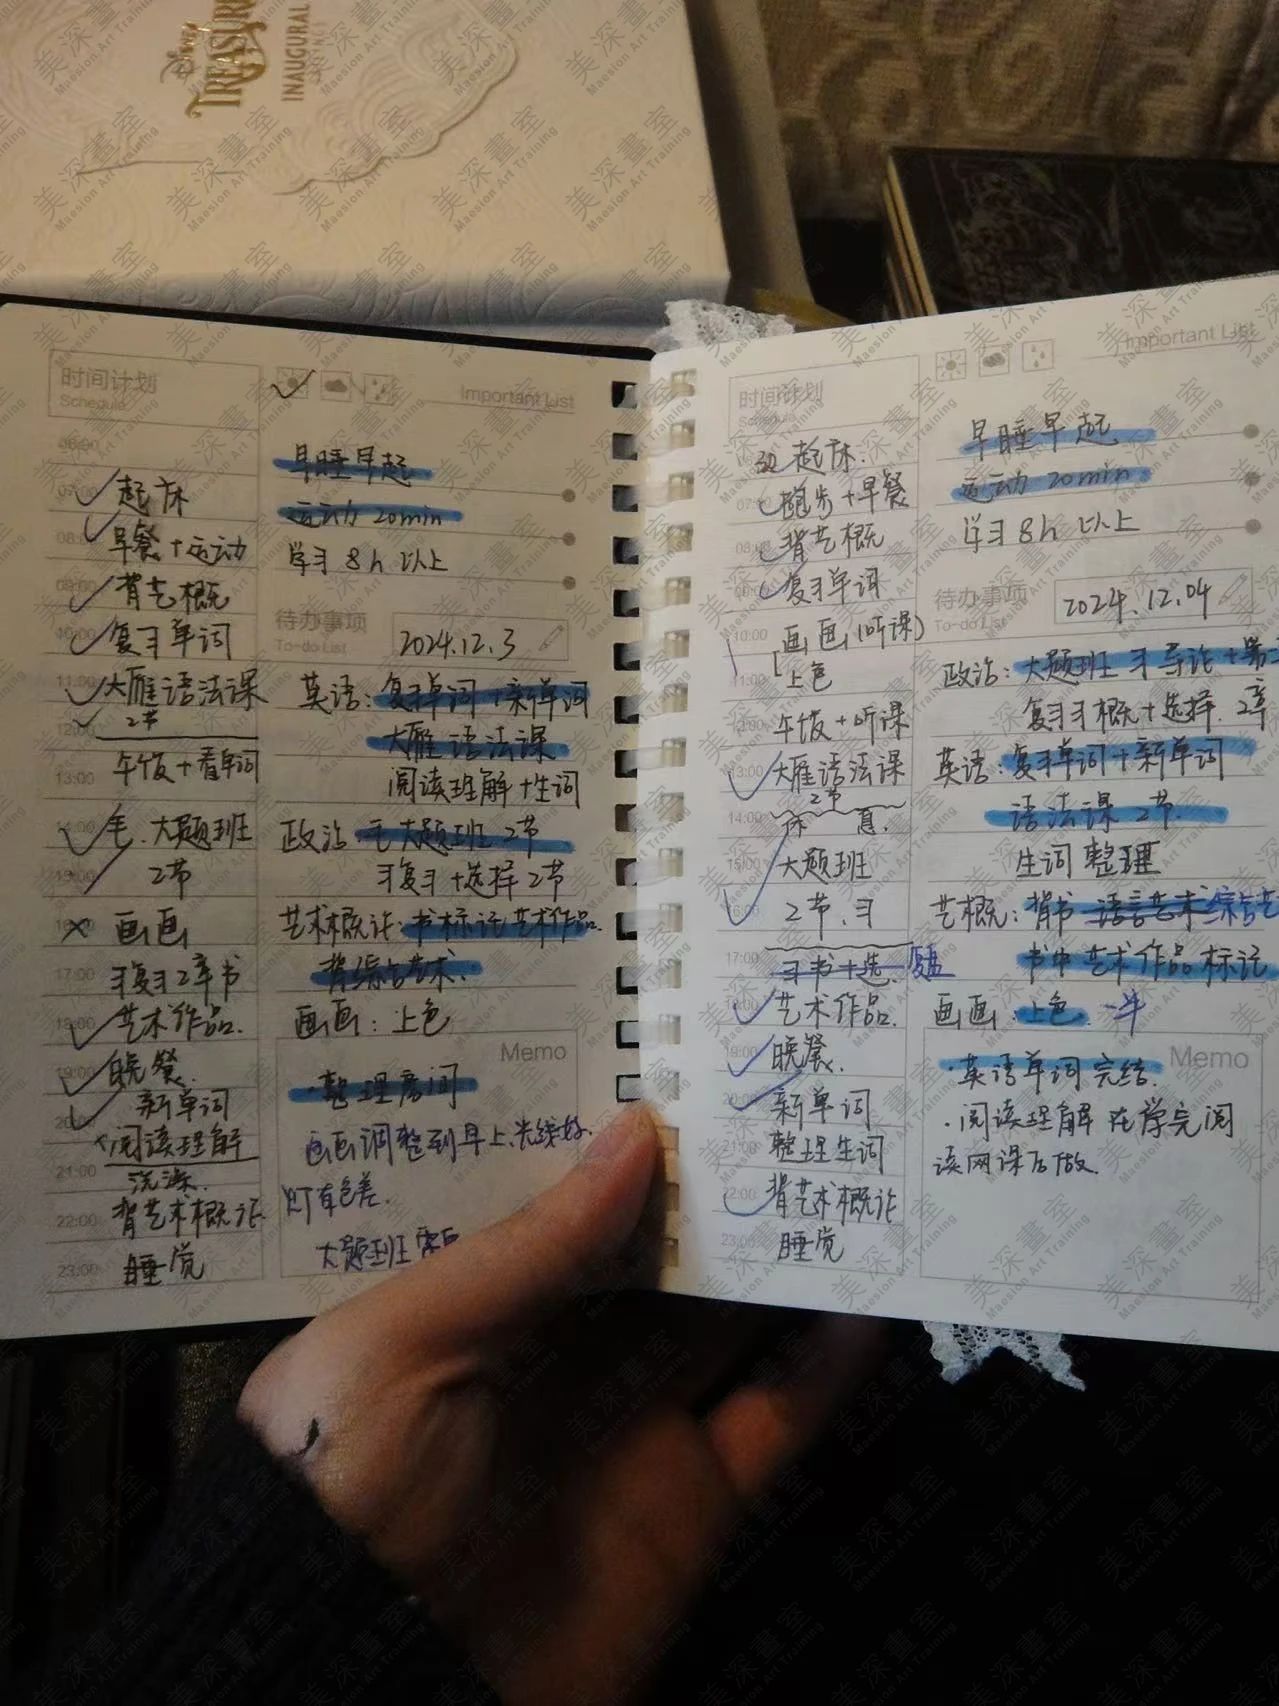 Disney
TREASURE
INAUGURAL
时间计划
Schedule
Important List
06:00
07:00 起床
08:00 早餐+运动
09:00 背艺概
10:00 复习单词
11:00 大雁语法课
2节
12:00
午饭+看单词
13:00
14:00 毛.大题班
15:00 2节
16:00 画画
17:00 习复习2章书
18:00 艺术作品.
19:00 晚餐.
20:00 新单词
阅读理解
21:00
洗澡.
22:00 背艺术概论
23:00 睡觉
早睡早起
运动20min
学习8h以上
待办事项
To-do List
2024.12.3
英语:复习单词+新单词
大雁语法课
阅读理解+生词
政治:毛大题班2节
习复习+选择2节
艺术概论:书标记艺术作品.
背综合艺术.
画画:上色
Memo
·整理房间
画画调整到早上,光线好.
灯有色差.
大题班
时间计划
Schedule
Important List
起床.
07:00 跑步+早餐
08:00 背艺概
09:00 复习单词
10:00 画画(听课)
11:00 上色
12:00 午饭+听课
13:00 大雁语法课
2节
14:00
休息.
15:00 大题班
16:00 2节.习
17:00 习书+选.
18:00 艺术作品.
19:00 晚餐.
20:00 新单词
21:00 整理生词
22:00 背艺术概论
23:00 睡觉
早睡早起
运动20min
学习8h以上
待办事项
To-do List
2024.12.04
政治:大题班 习导论+第
复习习概+选择.2章
英语:复习单词+新单词
语法课2节.
生词整理
艺概:背书 语言艺术 综合艺
书中艺术作品标记
画画:上色.一半
Memo
·英语单词完结.
·阅读理解在学完阅
读网课后做.
美深畫室
Maesion Art Training